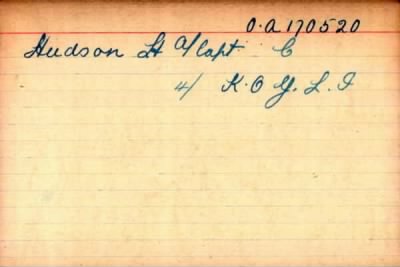 O.A 170520
Hudson Lt A/Capt C
4/ K.O.Y.L.I